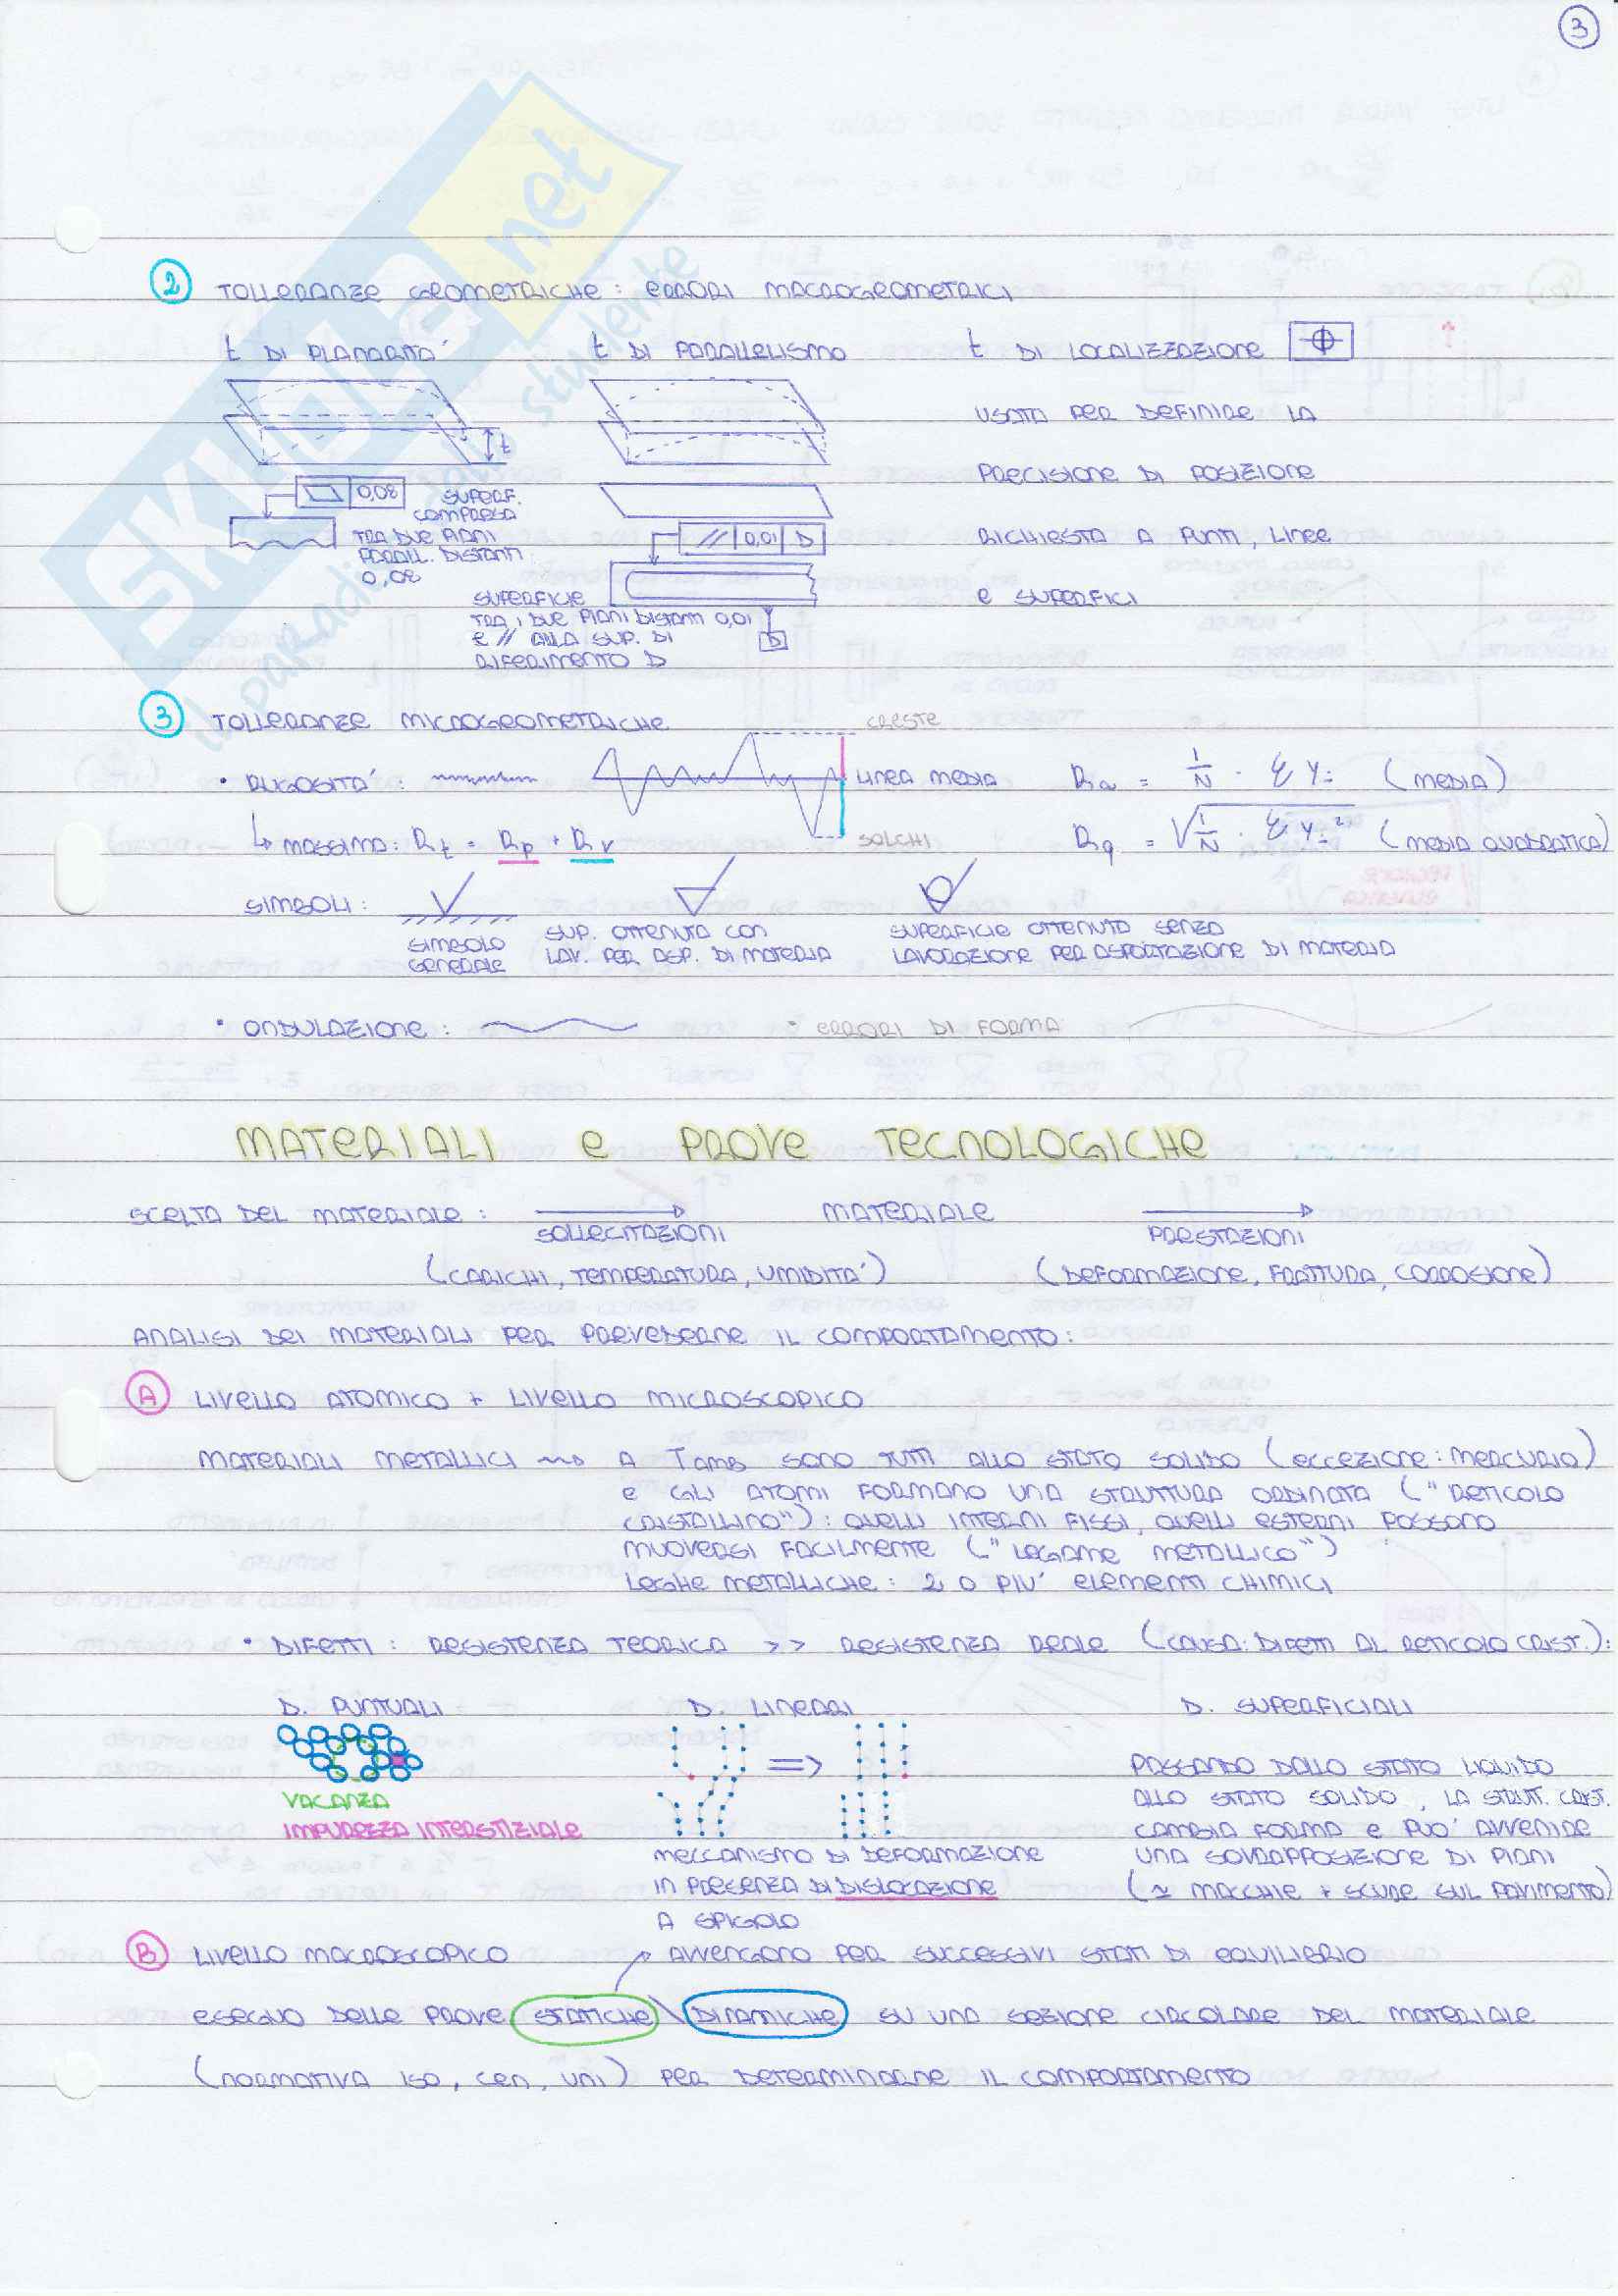 3
② TOLLERANZE GEOMETRICHE: ERRORI MACROGEOMETRICI
t DI PLANARITA'
t DI PARALLELISMO
t DI LOCALIZZAZIONE
USATA PER DEFINIRE LA
PRECISIONE DI POSIZIONE
RICHIESTA A PUNTI, LINEE
E SUPERFICI
t
0,08
SUPERF.
COMPRESA
TRA DUE PIANI
PARALL. DISTANTI
0,08
// 0,01 D
SUPERFICIE
TRA I DUE PIANI DISTANTI 0,01
E // ALLA SUP. DI
RIFERIMENTO D
D
③ TOLLERANZE MICROGEOMETRICHE
CRESTE
• RUGOSITA':
LINEA MEDIA
Ra = 1/N · Σ Yi (MEDIA)
↳ MASSIMA: Rt = Rp + Rv
SOLCHI
Rq = √(1/N · Σ Yi²) (MEDIA QUADRATICA)
SIMBOLI:
SIMBOLO
GENERALE
SUP. OTTENUTA CON
LAV. PER ASP. DI MATERIA
SUPERFICIE OTTENUTA SENZA
LAVORAZIONE PER ASPORTAZIONE DI MATERIA
• ONDULAZIONE:
• ERRORI DI FORMA
MATERIALI E PROVE TECNOLOGICHE
SCELTA DEL MATERIALE: → MATERIALE →
SOLLECITAZIONI
PRESTAZIONI
(CARICHI, TEMPERATURA, UMIDITA')
(DEFORMAZIONE, FRATTURA, CORROSIONE)
ANALISI DEI MATERIALI PER PREVEDERNE IL COMPORTAMENTO:
Ⓐ LIVELLO ATOMICO + LIVELLO MICROSCOPICO
MATERIALI METALLICI ⇝ A TAMB SONO TUTTI ALLO STATO SOLIDO (ECCEZIONE: MERCURIO)
E GLI ATOMI FORMANO UNA STRUTTURA ORDINATA ("RETICOLO
CRISTALLINO"): QUELLI INTERNI FISSI, QUELLI ESTERNI POSSONO
MUOVERSI FACILMENTE ("LEGAME METALLICO")
LEGHE METALLICHE: 2 O PIU' ELEMENTI CHIMICI
• DIFETTI: RESISTENZA TEORICA >> RESISTENZA REALE (CAUSA: DIFETTI AL RETICOLO CRIST.):
D. PUNTUALI
VACANZA
IMPUREZZA INTERSTIZIALE
D. LINEARI
=>
MECCANISMO DI DEFORMAZIONE
IN PRESENZA DI DISLOCAZIONE
A SPIGOLO
D. SUPERFICIALI
PASSANDO DALLO STATO LIQUIDO
ALLO STATO SOLIDO, LA STRUT. CRIST.
CAMBIA FORMA E PUO' AVVENIRE
UNA SOVRAPPOSIZIONE DI PIANI
(≃ MACCHIE + SCURE SUL PAVIMENTO)
Ⓑ LIVELLO MACROSCOPICO
AVVENGONO PER SUCCESSIVI STATI DI EQUILIBRIO
ESEGUO DELLE PROVE STATICHE \ DINAMICHE SU UNA SEZIONE CIRCOLARE DEL MATERIALE
(NORMATIVA ISO, CEN, UNI) PER DETERMINARNE IL COMPORTAMENTO
SKUOLA.net
il paradiso dello studente